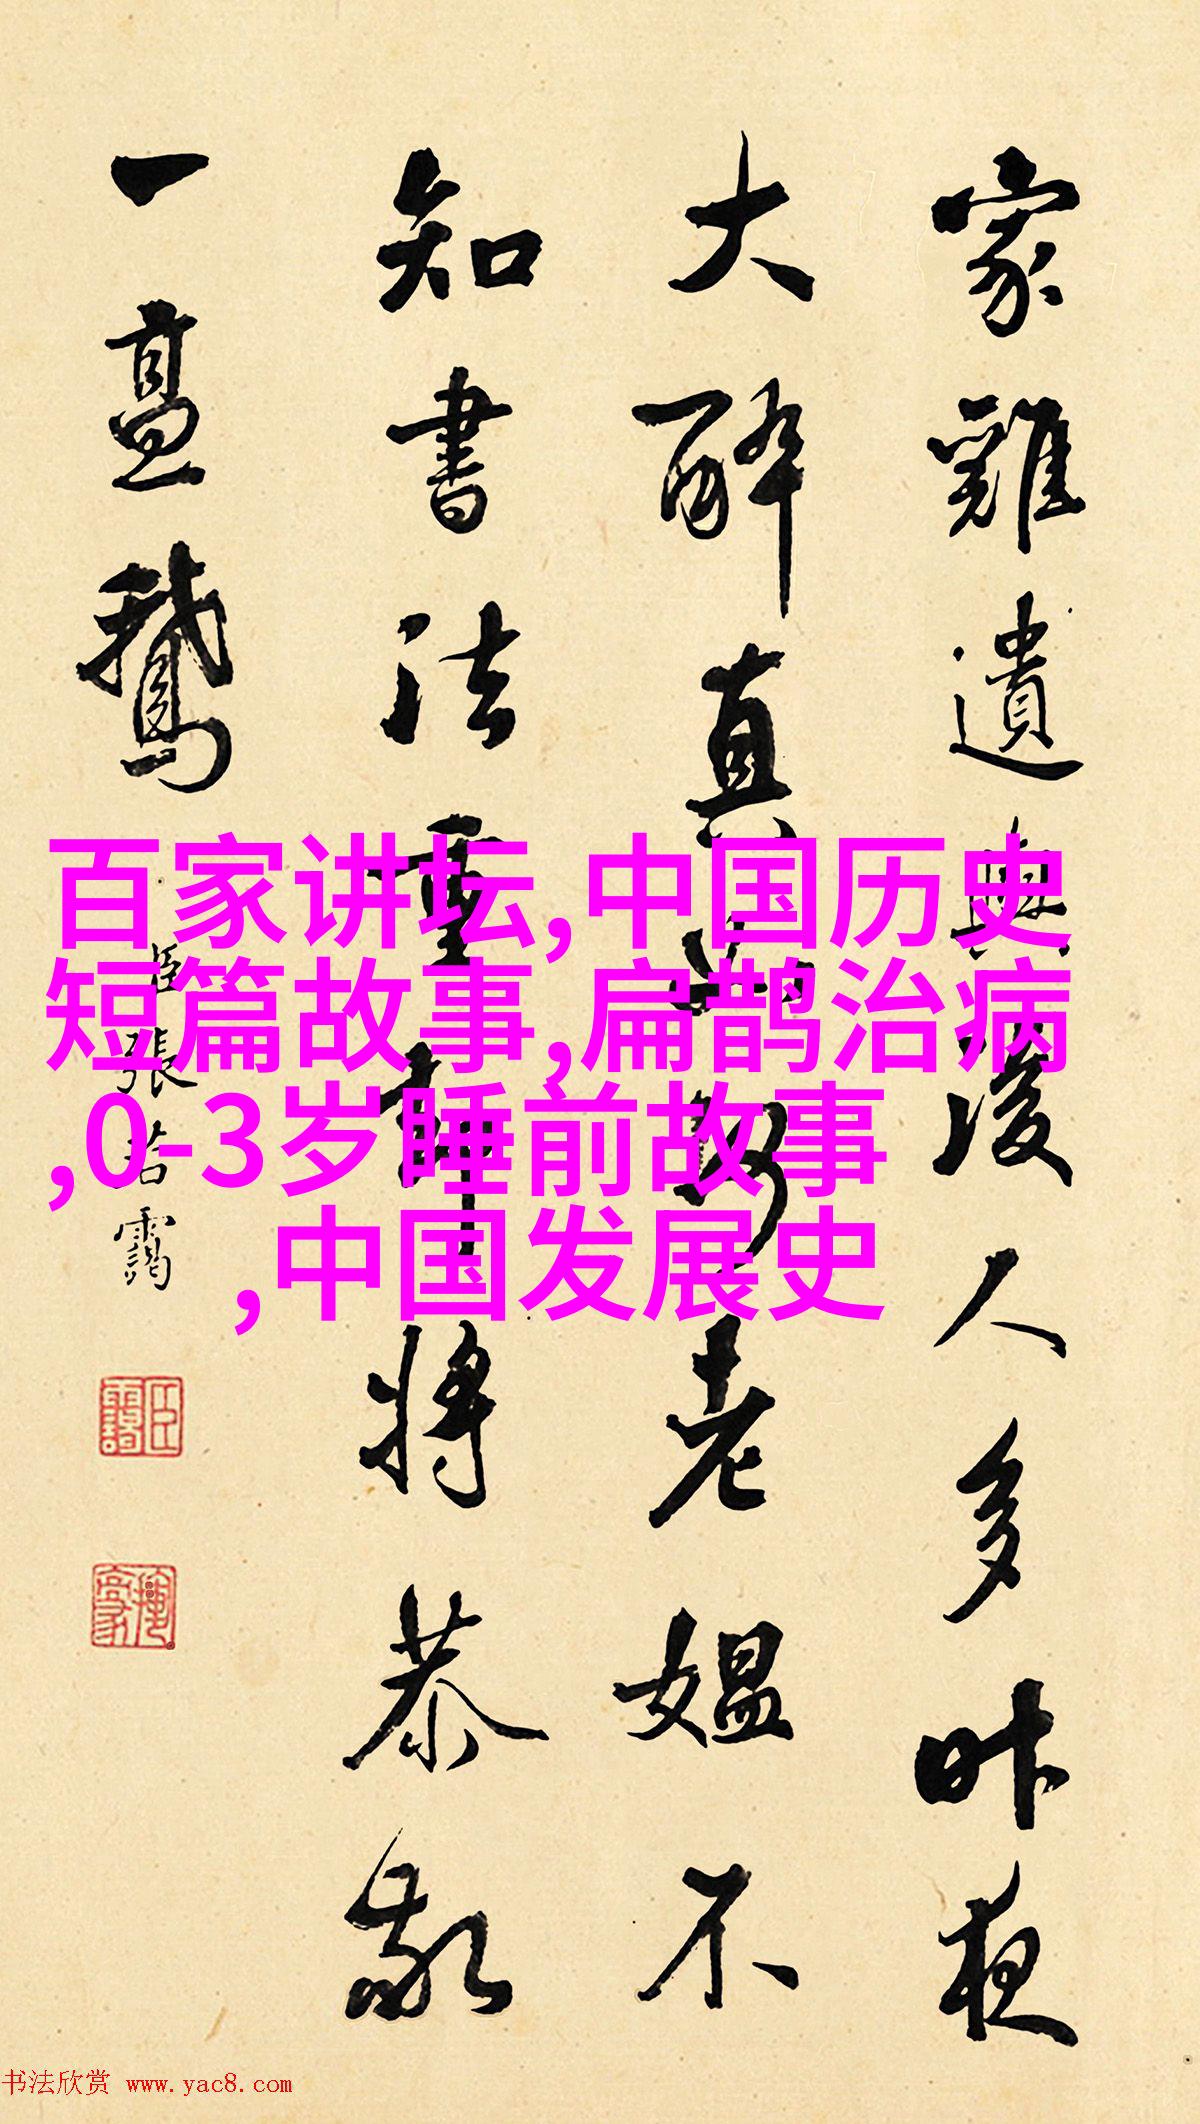 家雞遺與後人多昨夜
大醉真老媼不
知書法重將恭敬
一鵝
臣張若靄
百家讲坛,中国历史
短篇故事,扁鹊治病
,0-3岁睡前故事
,中国发展史
书法欣赏 www.yac8.com